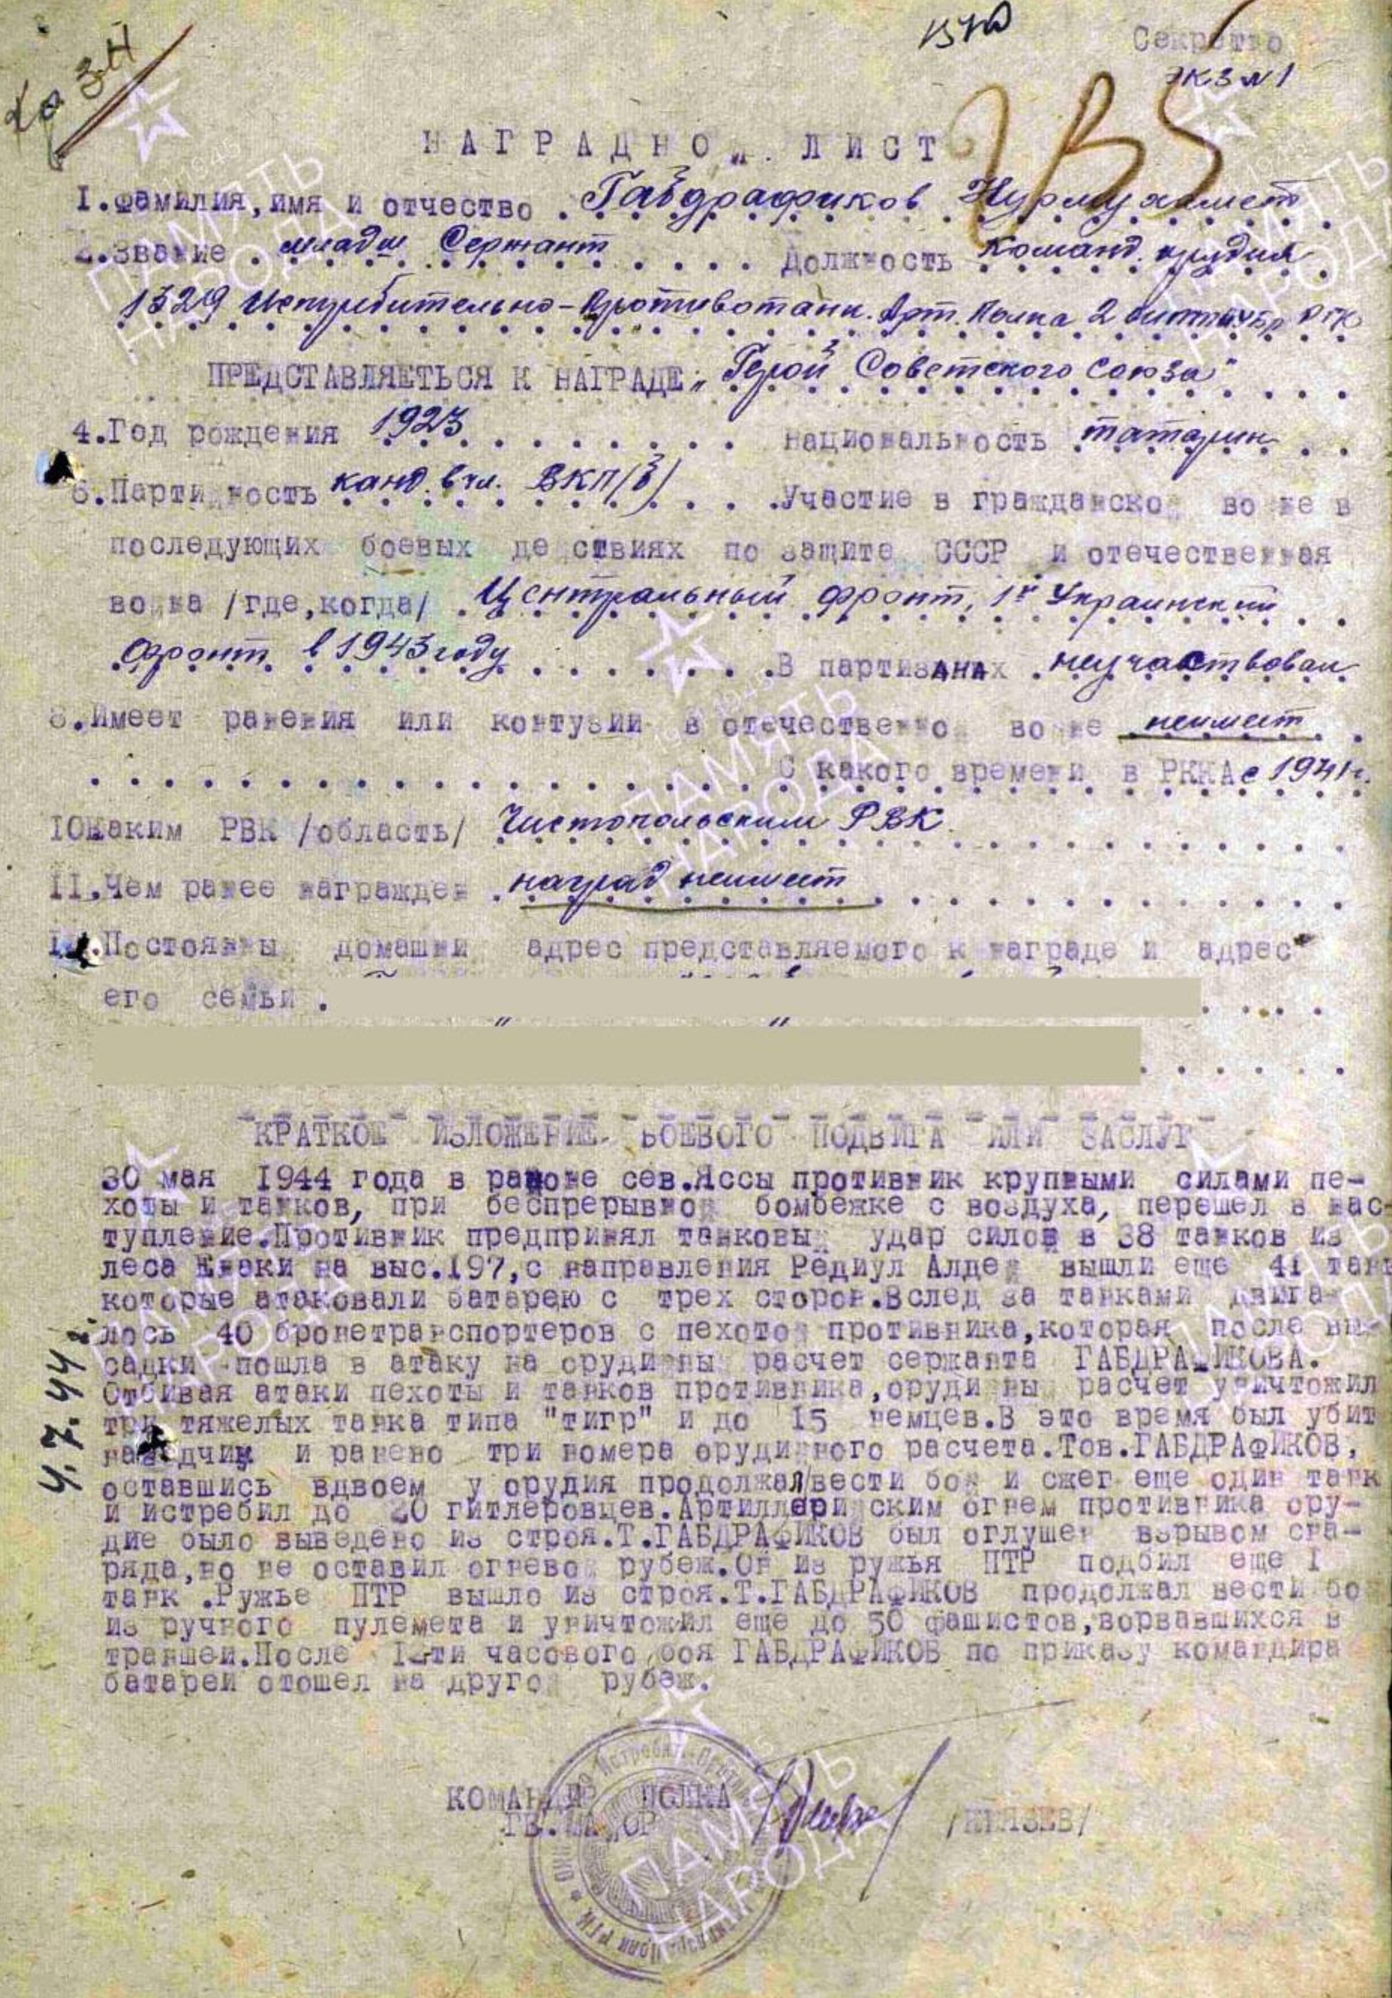 Секретно
экз №1
НАГРАДНОЙ ЛИСТ
1.Фамилия,имя и отчество . Габдрафиков Нурмухамет
2.Звание . младш Сержант Должность Команд. орудия
1329 Истребительно-Противотанк. Арт. Полка
ПРЕДСТАВЛЯЕТЬСЯ К НАГРАДЕ „Герой Советского Союза"
4.Год рождения 1923 национальность татарин
6.Партийность канд. в чл. ВКП/б/ .Участие в гражданской войне в
последующих боевых действиях по защите СССР и отечественная
война /где,когда/ Центральный фронт, 1й Украинский
фронт в 1943 году .В партизанах не участвовал
8.Имеет ранения или контузии в отечественной войне неимеет
С какого времени в РККА с 1941 г.
10.Каким РВК /область/ Чистопольским РВК
11.Чем ранее награжден . наград неимеет
Постоянный домашний адрес представляемого к награде и адрес
его семьи .
КРАТКОЕ ИЗЛОЖЕНИЕ БОЕВОГО ПОДВИГА ИЛИ ЗАСЛУГ
30 мая 1944 года в районе сев.Яссы противник крупными силами пе-
хоты и танков, при беспрерывной бомбежке с воздуха, перешел в нас-
тупление.Противник предпринял танковый удар силой в 38 танков из
леса Енаки на выс.197,с направления Редиул Алдей вышли еще 41 танк
которые атаковали батарею с трех сторон.Вслед за танками двига-
лось 40 бронетранспортеров с пехотой противника,которая после вы-
садки пошла в атаку на орудийный расчет сержанта ГАБДРАФИКОВА.
Отбивая атаки пехоты и танков противника,орудийный расчет уничтожил
три тяжелых танка типа "тигр" и до 15 немцев.В это время был убит
наводчик и ранено три номера орудийного расчета.Тов.ГАБДРАФИКОВ,
оставшись вдвоем у орудия продолжал вести бой и сжег еще один танк
и истребил до 20 гитлеровцев.Артиллерийским огнем противника ору-
дие было выведено из строя.Т.ГАБДРАФИКОВ был оглушен взрывом сна-
ряда,но не оставил огневой рубеж.Он из ружья ПТР подбил еще 1
танк .Ружье ПТР вышло из строя.Т.ГАБДРАФИКОВ продолжал вести бой
из ручного пулемета и уничтожил еще до 50 фашистов,ворвавшихся в
траншеи.После ти часового боя ГАБДРАФИКОВ по приказу командира
батареи отошел на другой рубеж.
4.7.44 г.
КОМАНДИР ПОЛКА
ГВ.МАЙОР /КНЯЗЕВ/
ПАМЯТЬ
НАРОДА